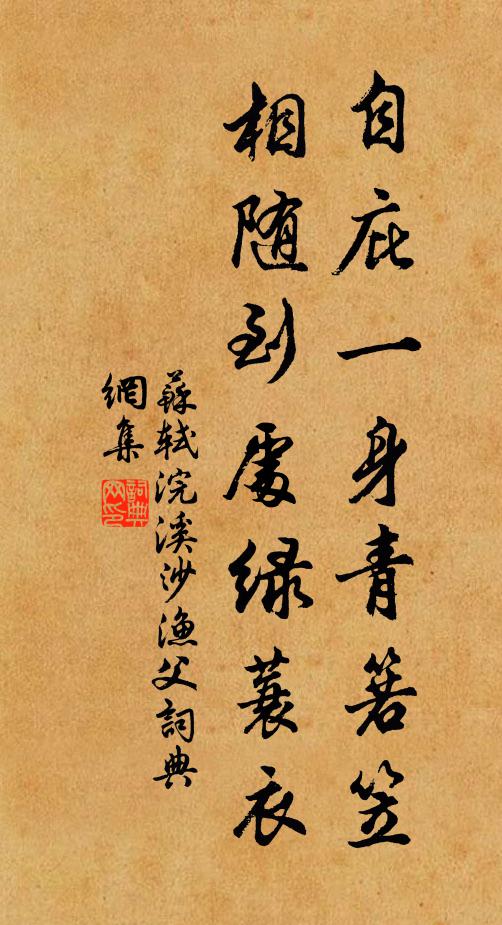 自庇一身青箬笠
相随到處緑蓑衣
蘇軾浣溪沙漁父詞典
網集
詞典網印